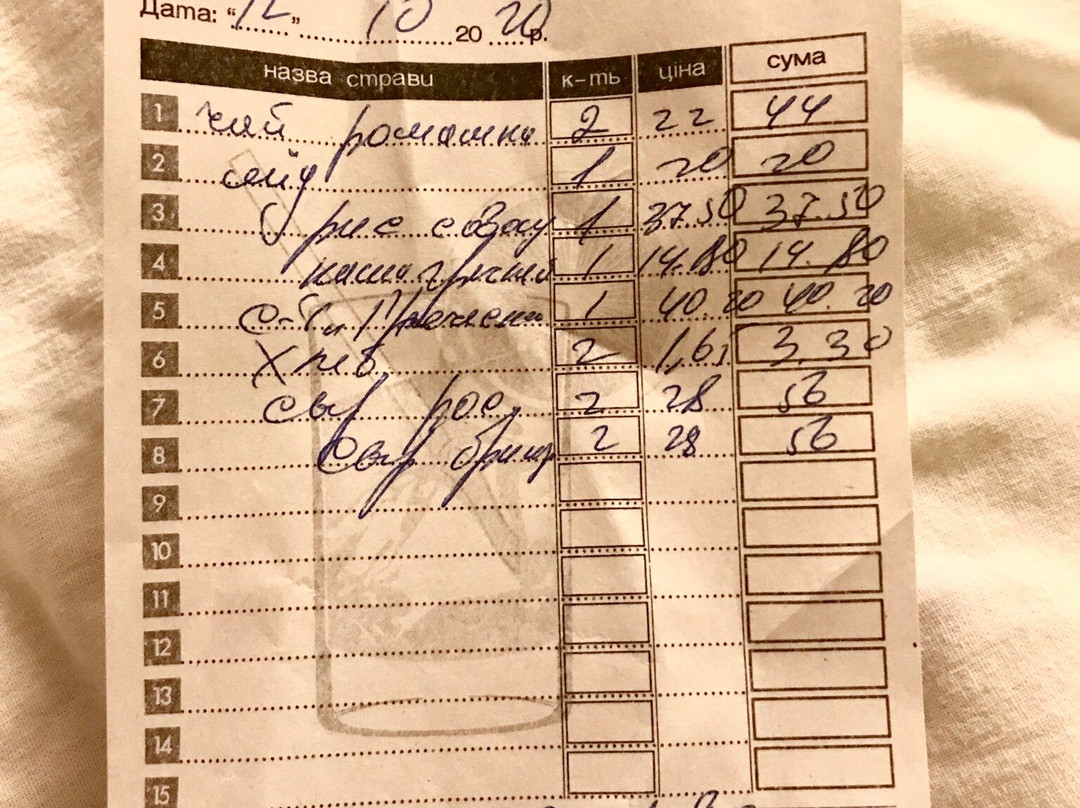 Дата: "12" 10 2020р.
назва страви к-ть ціна сума
1 чай ромашка 2 22 44
2 мёд 1 20 20
3 рис с овощ 1 37.50 37.50
4 каша гречан 1 14.80 14.80
5 с-т 1 40.20 40.20
6 Хлеб 2 1,65 3.30
7 сыр рос. 2 28 56
8 Сыр 2 28 56
9
10
11
12
13
14
15